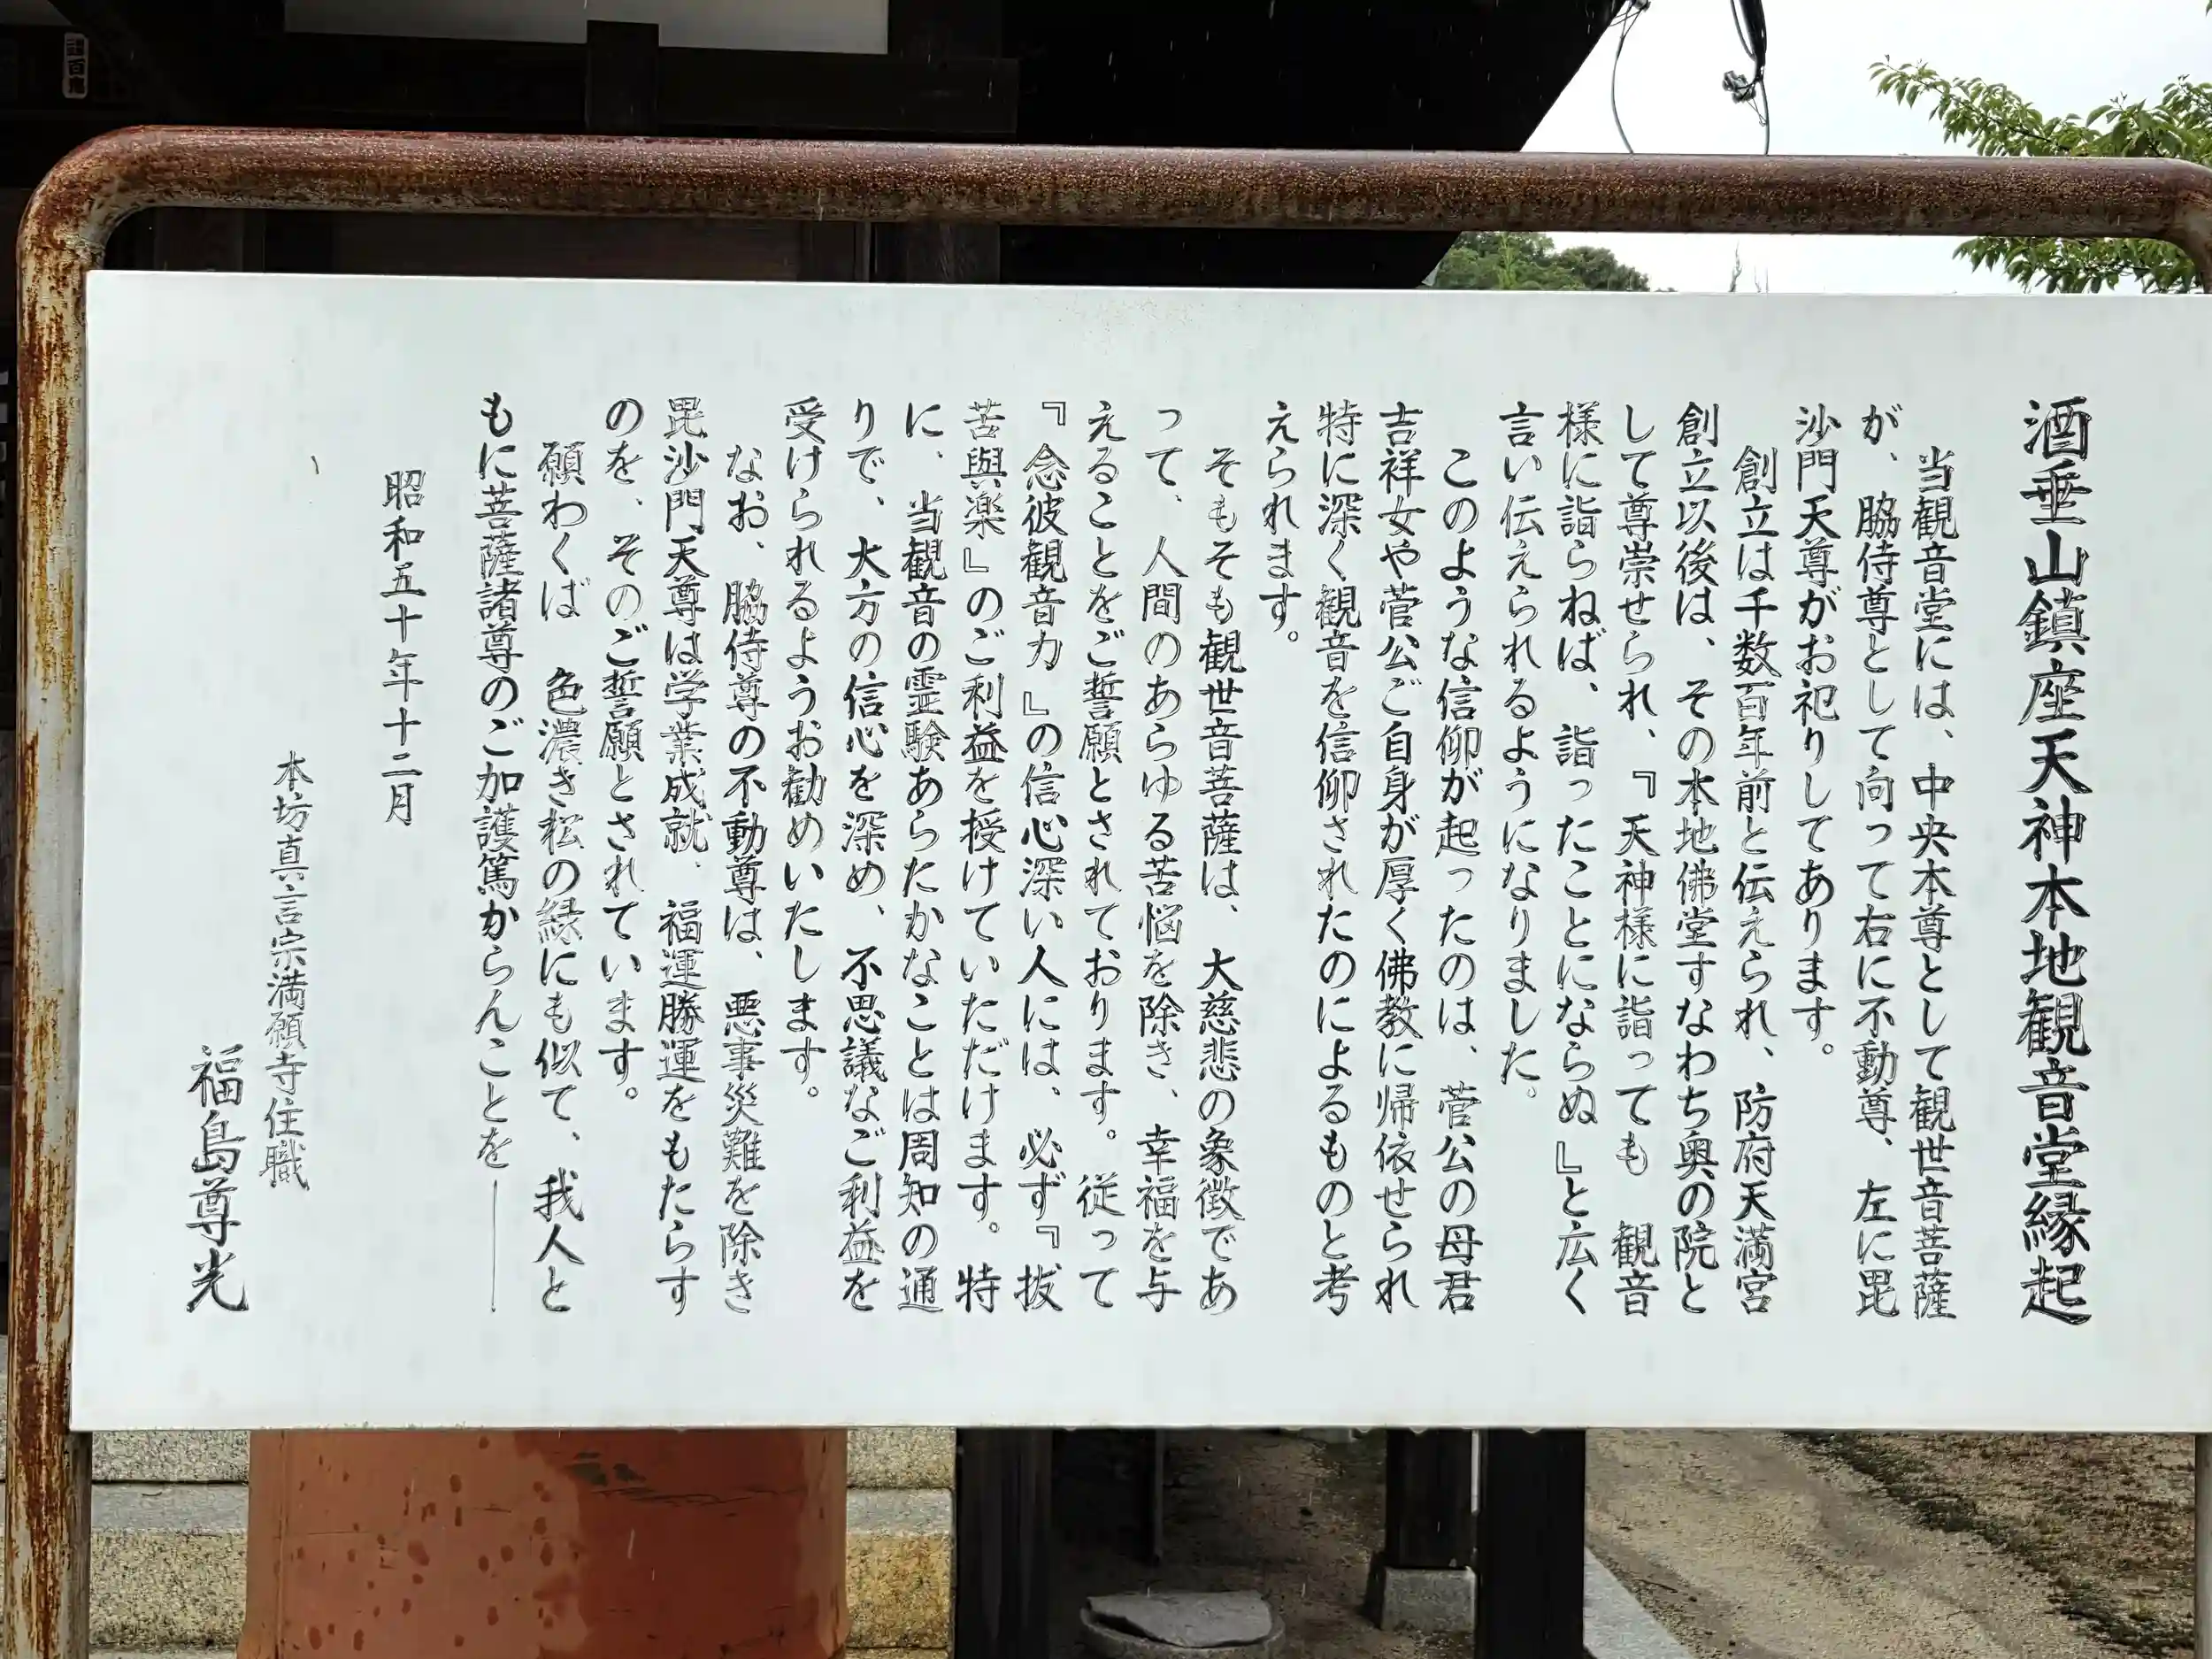 酒垂山鎮座天神本地観音堂縁起
当観音堂には、中央本尊として観世音菩薩
が、脇侍尊として向って右に不動尊、左に毘
沙門天尊がお祀りしてあります。
創立は千数百年前と伝えられ、防府天満宮
創立以後は、その本地佛堂すなわち奥の院と
して尊崇せられ、『天神様に詣っても 観音
様に詣らねば、詣ったことにならぬ』と広く
言い伝えられるようになりました。
このような信仰が起ったのは、菅公の母君
吉祥女や菅公ご自身が厚く佛教に帰依せられ
特に深く観音を信仰されたのによるものと考
えられます。
そもそも観世音菩薩は、大慈悲の象徴であ
って、人間のあらゆる苦悩を除き、幸福を与
えることをご誓願とされております。従って
『念彼観音力』の信心深い人には、必ず『抜
苦與楽』のご利益を授けていただけます。特
に、当観音の霊験あらたかなことは周知の通
りで、大方の信心を深め、不思議なご利益を
受けられるようお勧めいたします。
なお、脇侍尊の不動尊は、悪事災難を除き
毘沙門天尊は学業成就、福運勝運をもたらす
のを、そのご誓願とされています。
願わくば 色濃き松の緑にも似て、我人と
もに菩薩諸尊のご加護篤からんことを――
昭和五十年十二月
本坊真言宗満願寺住職
福島尊光